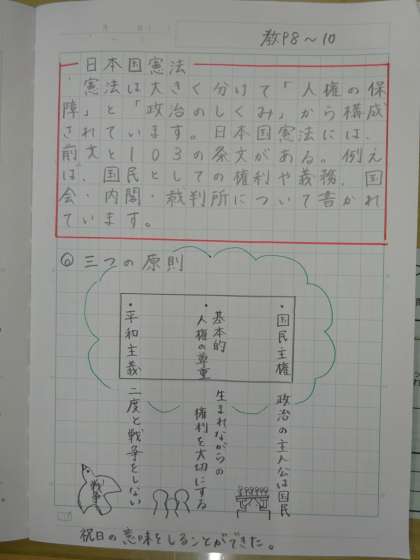 教P8〜10
日本国憲法
憲法は大きく分けて「人権の保
障」と「政治のしくみ」から構成
されています。日本国憲法には、
前文と103の条文がある。例え
ば、国民としての権利や義務、国
会・内閣・裁判所について書かれ
ています。
◎三つの原則
・国民主権 政治の主人公は国民
・基本的人権の尊重 生まれながらの
権利を大切にする
・平和主義 二度と戦争をしない
戦争
祝日の意味をしることができた。